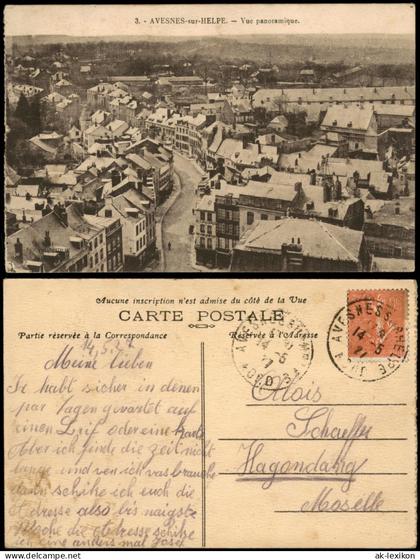 3. - AVESNES-sur-HELPE. - Vue panoramique.
Aucune inscription n'est admise du côté de la Vue
CARTE POSTALE
Partie réservée à la Correspondance
Réservée à l'Adresse
14.5.27
Meine Lieben
Ir habt sicher in denen
par Tagen gewartet auf
einen Brif oder eine Karte
Aber ich finde die zeit nicht
lange und wen ich was brauche
dann schike ich euch die
Adresse also bis naigste
Woche die Adresse schike
ich eine anders mal Josef
Alois
Schaeffer
Hagondang
Moselle
AVESNES S/HELPE
14 - 5
27
NORD
AVESNES S/HELPE
14 - 5
27
NORD
ak-lexikon.de